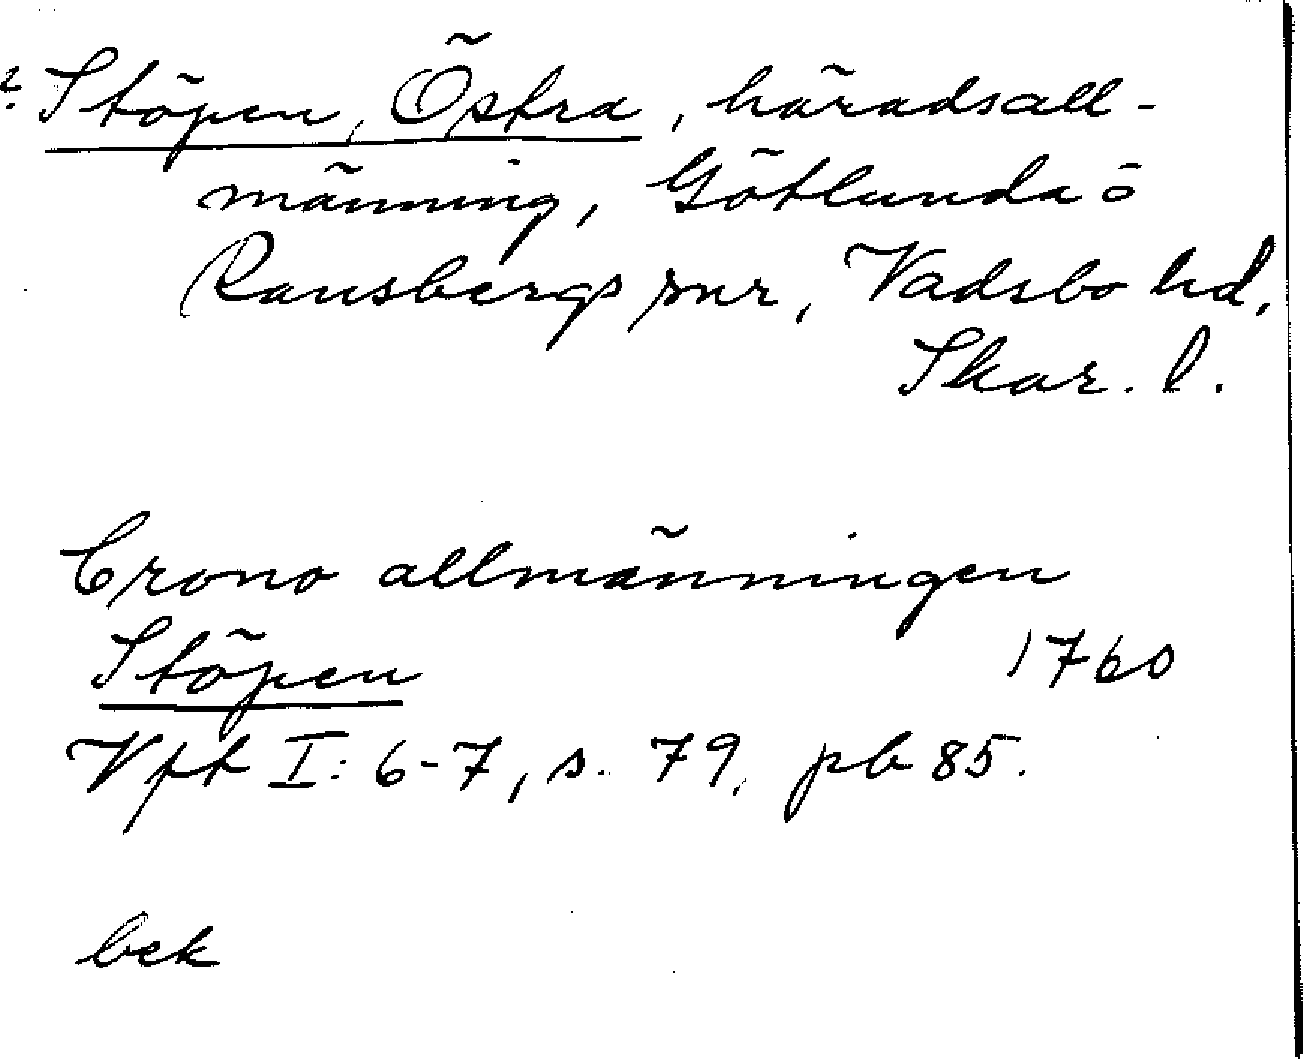 ? Stöpen, Östra, häradsall-
männing, Götlunda o
Ransbergs snr, Vadsbo hd,
Skar. l.
Crono allmänningen
Stöpen 1760
Vft I: 6-7, s. 79, pb 85.
bek